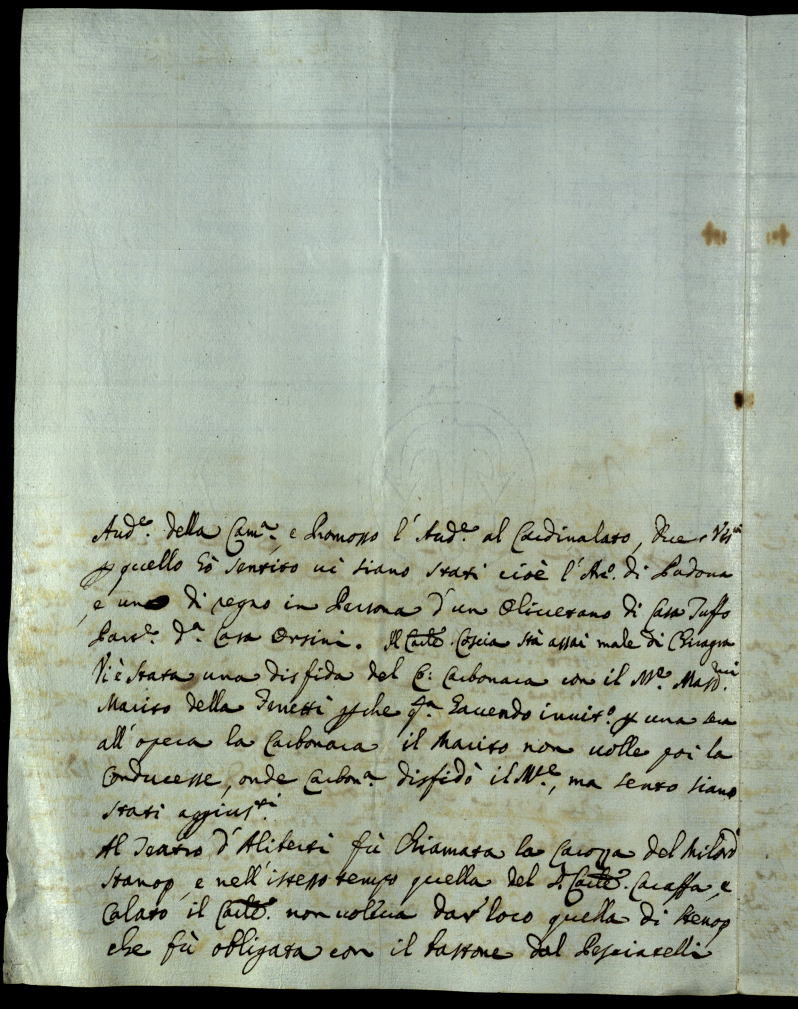 Aud.e della Cam.a, e Promosso l'Aud.e al Cardinalato, Due Vesc.vi
p quello hò sentito vi siano stati cioè l'Arc.o di Padova
e uno di regno in Persona d'un Olivetano di Casa Tuffo
Par.te d.a Casa Orsini. Il Card.e Coscia stà assai male di Chiragra
Vi è stata una disfida del C: Carbonara con il M.se
Marito della Tenetti pche q.a havendo invit.o p una sera
all'opera la Carbonara il Marito non volle poi la
Conducesse, onde Carbon.a disfidò il M.se, ma sento siano
stati aggius.ti
Al Teatro d'Aliberti fù Chiamata la Carozza del Milord
Stanop, e nell'istesso tempo quella del S. Card.e Caraffa, e
Calato il Card.e non voleva dar loco quella di Stenop
che fù obligata con il bastone dal Pesciatelli